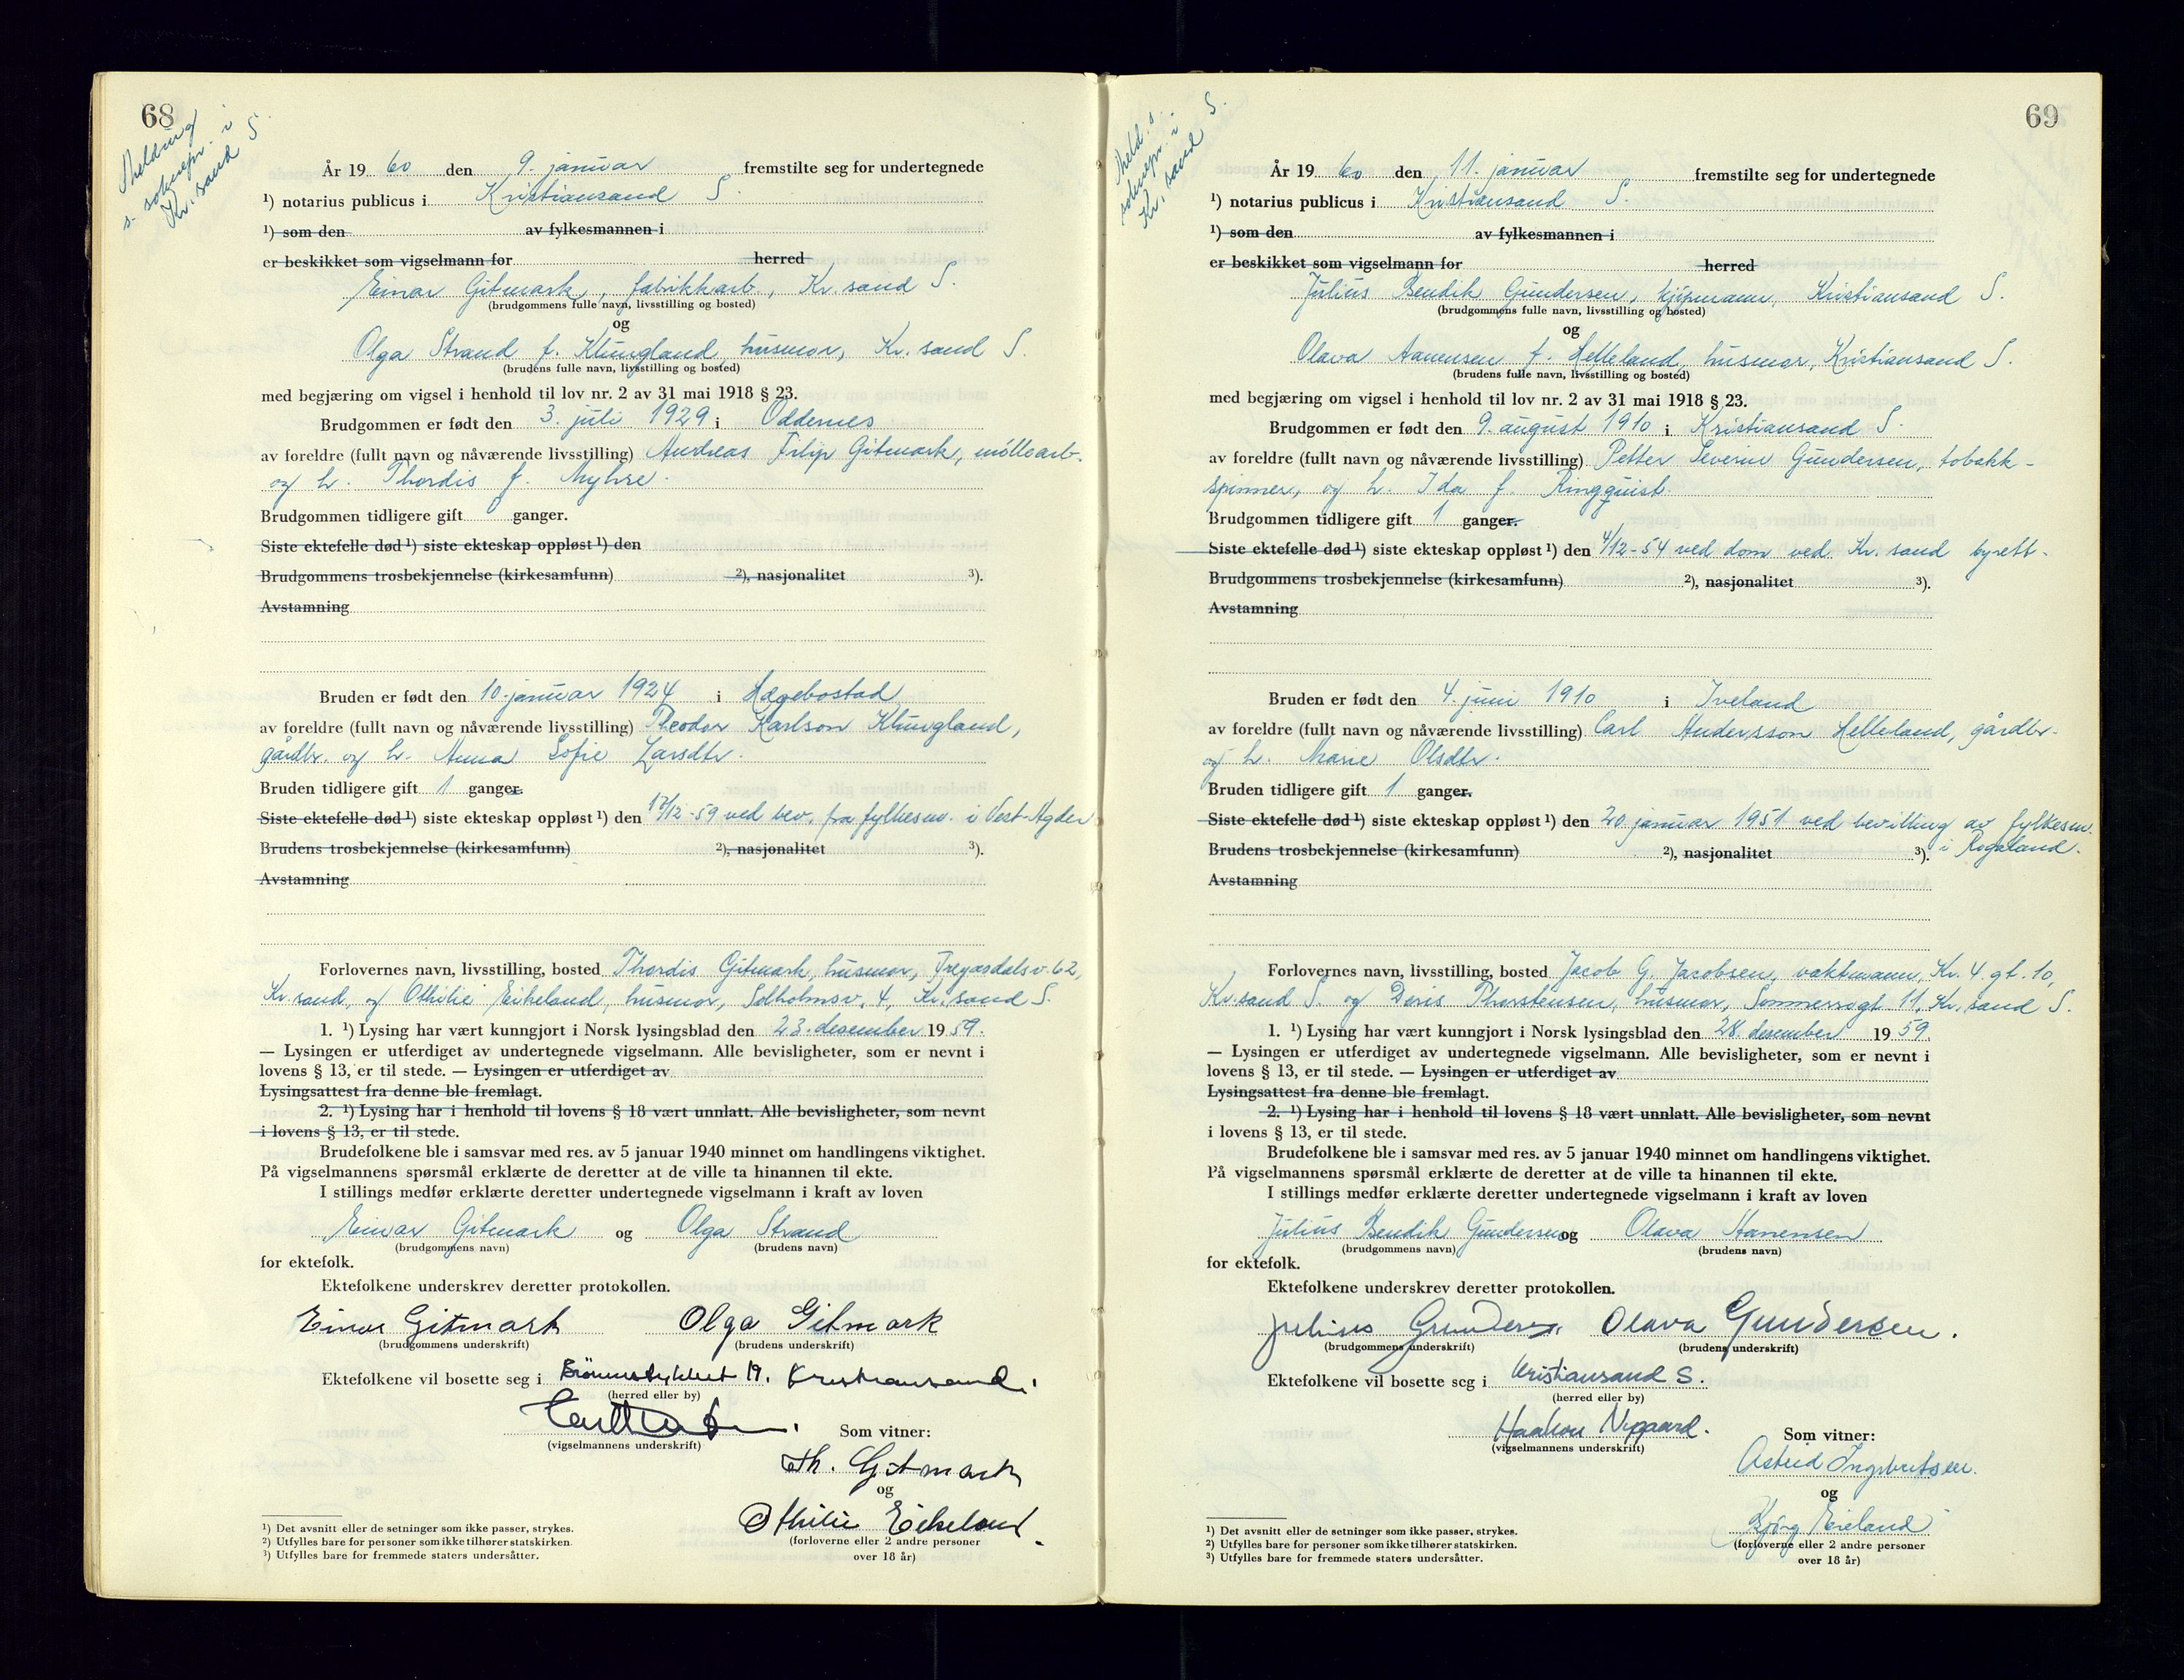 68
Melding
s. soknepr. i
Kr. sand S.
År 1960 den 9. januar fremstilte seg for undertegnede
¹) notarius publicus i Kristiansand S.
¹) som den av fylkesmannen i
er beskikket som vigselmann for herred
Einar Gitmark, fabrikkarb., Kr. sand S.
(brudgommens fulle navn, livsstilling og bosted)
og
Olga Strand f. Klungland, husmor, Kr. sand S.
(brudens fulle navn, livsstilling og bosted)
med begjæring om vigsel i henhold til lov nr. 2 av 31 mai 1918 § 23.
Brudgommen er født den 3. juli 1929 i Oddernes
av foreldre (fullt navn og nåværende livsstilling) Andreas Filip Gitmark, møllearb.
og h. Thordis f. Myhre.
Brudgommen tidligere gift ganger.
Siste ektefelle død ¹) siste ekteskap oppløst ¹) den
Brudgommens trosbekjennelse (kirkesamfunn) ²), nasjonalitet ³).
Avstamning
Bruden er født den 10. januar 1924 i Hægebostad
av foreldre (fullt navn og nåværende livsstilling) Theodor Karlson Klungland,
gårdbr. og h. Anna Sofie Larsdtr.
Bruden tidligere gift 1 ganger.
Siste ektefelle død ¹) siste ekteskap oppløst ¹) den 17/12-59 ved bev. fra fylkesm. i Vest-Agder
Brudens trosbekjennelse (kirkesamfunn) ²), nasjonalitet ³).
Avstamning
Forlovernes navn, livsstilling, bosted Thordis Gitmark, husmor, 62,
Kr. sand, og Othilie Eikeland, husmor, Solholmsv. 4, Kr. sand S.
1. ¹) Lysing har vært kunngjort i Norsk lysingsblad den 23. desember 1959.
— Lysingen er utferdiget av undertegnede vigselmann. Alle bevisligheter, som er nevnt i
lovens § 13, er til stede. — Lysingen er utferdiget av
Lysingsattest fra denne ble fremlagt.
2. ¹) Lysing har i henhold til lovens § 18 vært unnlatt. Alle bevisligheter, som nevnt
i lovens § 13, er til stede.
Brudefolkene ble i samsvar med res. av 5 januar 1940 minnet om handlingens viktighet.
På vigselmannens spørsmål erklærte de deretter at de ville ta hinannen til ekte.
I stillings medfør erklærte deretter undertegnede vigselmann i kraft av loven
Einar Gitmark og Olga Strand
(brudgommens navn) (brudens navn)
for ektefolk.
Ektefolkene underskrev deretter protokollen.
Einar Gitmark Olga Gitmark
(brudgommens underskrift) (brudens underskrift)
Ektefolkene vil bosette seg i Brønnstykket 19. Kristiansand.
(herred eller by)
(vigselmannens underskrift)
Som vitner:
Th. Gitmark
og
Othilie Eikeland.
(forloverne eller 2 andre personer
over 18 år)
¹) Det avsnitt eller de setninger som ikke passer, strykes.
²) Utfylles bare for personer som ikke tilhører statskirken.
³) Utfylles bare for fremmede staters undersåtter.
69
Meld. s.
soknepr. i
Kr. sand S.
År 1960 den 11. januar fremstilte seg for undertegnede
¹) notarius publicus i Kristiansand S.
¹) som den av fylkesmannen i
er beskikket som vigselmann for herred
Julius Bendik Gundersen, kjøpmann, Kristiansand S.
(brudgommens fulle navn, livsstilling og bosted)
og
Olava Aanensen f. Helleland, husmor, Kristiansand S.
(brudens fulle navn, livsstilling og bosted)
med begjæring om vigsel i henhold til lov nr. 2 av 31 mai 1918 § 23.
Brudgommen er født den 9. august 1910 i Kristiansand S.
av foreldre (fullt navn og nåværende livsstilling) Petter Severin Gundersen, tobakk-
spinner, og h. Ida f. Ringquist.
Brudgommen tidligere gift 1 ganger.
Siste ektefelle død ¹) siste ekteskap oppløst ¹) den 4/12-54 ved dom ved Kr. sand byrett.
Brudgommens trosbekjennelse (kirkesamfunn) ²), nasjonalitet ³).
Avstamning
Bruden er født den 4. juni 1910 i Iveland
av foreldre (fullt navn og nåværende livsstilling) Carl Andersson Helleland, gårdbr.
og h. Marie Olsdtr.
Bruden tidligere gift 1 ganger.
Siste ektefelle død ¹) siste ekteskap oppløst ¹) den 20. januar 1951 ved bevilling av fylkesm.
i Rogaland.
Brudens trosbekjennelse (kirkesamfunn) ²), nasjonalitet ³).
Avstamning
Forlovernes navn, livsstilling, bosted Jacob G. Jacobsen, vaktmann, Kr. 4. gt. 10,
Kr. sand S. og Doris Thorstensen, husmor, Sommerrogt. 11, Kr. sand S.
1. ¹) Lysing har vært kunngjort i Norsk lysingsblad den 28. desember 1959.
— Lysingen er utferdiget av undertegnede vigselmann. Alle bevisligheter, som er nevnt i
lovens § 13, er til stede. — Lysingen er utferdiget av
Lysingsattest fra denne ble fremlagt.
2. ¹) Lysing har i henhold til lovens § 18 vært unnlatt. Alle bevisligheter, som nevnt
i lovens § 13, er til stede.
Brudefolkene ble i samsvar med res. av 5 januar 1940 minnet om handlingens viktighet.
På vigselmannens spørsmål erklærte de deretter at de ville ta hinannen til ekte.
I stillings medfør erklærte deretter undertegnede vigselmann i kraft av loven
Julius Bendik Gundersen og Olava Aanensen
(brudgommens navn) (brudens navn)
for ektefolk.
Ektefolkene underskrev deretter protokollen.
Julius Gundersen Olava Gundersen.
(brudgommens underskrift) (brudens underskrift)
Ektefolkene vil bosette seg i Kristiansand S.
(herred eller by)
Haakon Nygaard.
(vigselmannens underskrift)
Som vitner:
Astrid Ingebretsen.
og
Kjørg Eieland
(forloverne eller 2 andre personer
over 18 år)
¹) Det avsnitt eller de setninger som ikke passer, strykes.
²) Utfylles bare for personer som ikke tilhører statskirken.
³) Utfylles bare for fremmede staters undersåtter.